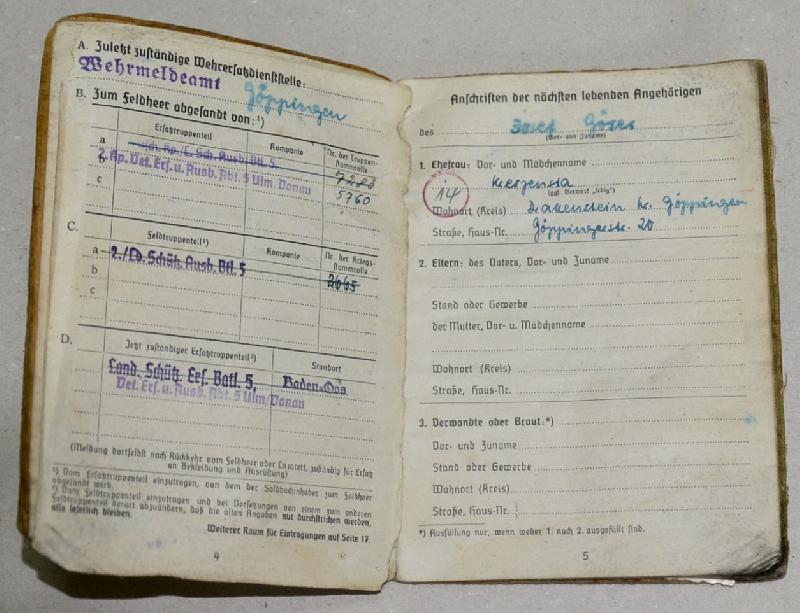 A. Zuletzt zuständige Wehrersatzdienststelle:
Wehrmeldeamt
Göppingen
B. Zum Feldheer abgesandt von:¹)
Ersatztruppenteil Kompanie Nr. der Truppen-stammrolle
a Ausb. Btl. 5 7288
b 2. Vet. Ers. u. Ausb. Abt. 5 Ulm/Donau 5760
c
C.
Feldtruppenteil²) Kompanie Nr. der Kriegs-stammrolle
a 2./Ld. Schütz. Ausb. Btl. 5 2665
b
c
D.
Jetzt zuständiger Ersatztruppenteil²) Standort
Land. Schütz. Ers. Batl. 5, Baden-Oos
Vet. Ers. u. Ausb. Abt. 5 Ulm/Donau
(Meldung dortselbst nach Rückkehr vom Feldheer oder Lazarett, zuständig für Ersatz
an Bekleidung und Ausrüstung)
¹) Vom Ersatztruppenteil einzutragen, von dem der Soldbuchinhaber zum Feldheer
abgesandt wird.
²) Vom Feldtruppenteil einzutragen und bei Versetzungen von einem zum anderen
Feldtruppenteil derart abzuändern, daß die alten Angaben nur durchstrichen werden,
also leserlich bleiben.
Weiterer Raum für Eintragungen auf Seite 17.
4
Anschriften der nächsten lebenden Angehörigen
des Josef Göser
(Vor- und Zuname)
1. Ehefrau: Vor- und Mädchenname
14
(ggf. Vermerk „ledig")
Wohnort (Kreis) Kr. Göppingen
Straße, Haus-Nr. Göppingerstr. 20
2. Eltern: des Vaters, Vor- und Zuname
Stand oder Gewerbe
der Mutter, Vor- u. Mädchenname
Wohnort (Kreis)
Straße, Haus-Nr.
3. Verwandte oder Braut:*)
Vor- und Zuname
Stand oder Gewerbe
Wohnort (Kreis)
Straße, Haus-Nr.
*) Ausfüllung nur, wenn weder 1. noch 2. ausgefüllt sind.
5